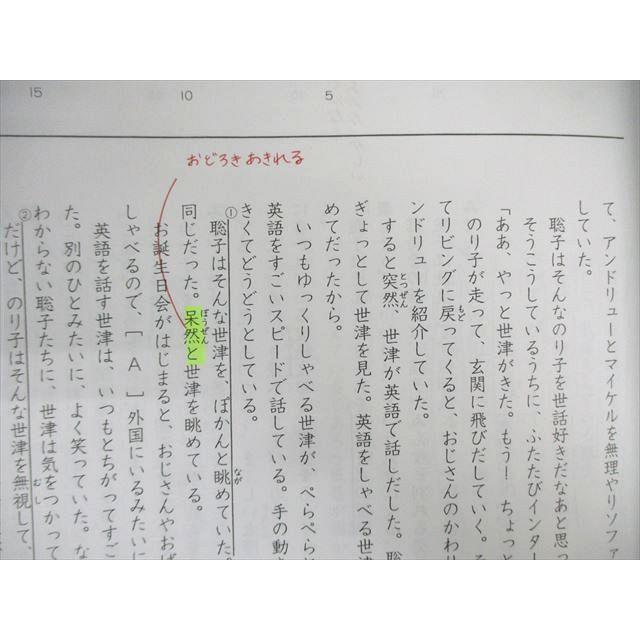 5
10
15
おどろきあきれる
て、アンドリューとマイケルを無理やりソファ
していた。
聡子はそんなのり子を世話好きだなあと思っ
そうこうしているうちに、ふたたびインター
「ああ、やっと世津がきた。もう！　ちょっと
のり子が走って、玄関に飛びだしていく。
てリビングに戻ってくると、おじさんのかわり
もど
ンドリューを紹介していた。
すると突然、世津が英語で話しだした。聡
とつぜん
ぎょっとして世津を見た。英語をしゃべる世津
めてだったから。
いつもゆっくりしゃべる世津が、ぺらぺらと
英語をすごいスピードで話している。手の動き
きくてどうどうとしている。
①聡子はそんな世津を、ぽかんと眺めていた。
なが
同じだった。呆然と世津を眺めている。
ぼうぜん
お誕生日会がはじまると、おじさんやおば
しゃべるので、［　A　］外国にいるみたいに
英語を話す世津は、いつもとちがってすご
た。別のひとみたいに、よく笑っていた。な
わからない聡子たちに、世津は気をつかって
②だけど、のり子はそんな世津を無視して、
むし